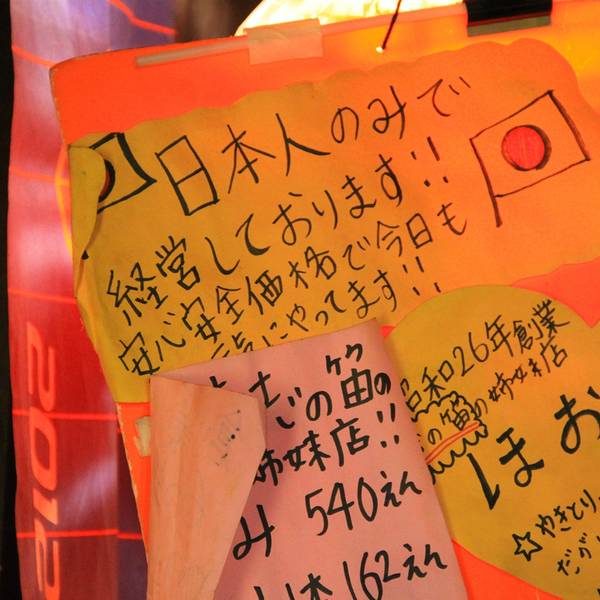 日本人のみで
経営しております!!
安心安全価格で今日も
元気にやってます!!
の笛の
姉妹店!!
み 540えん
162えん
昭和26年創業
の笛の姉妹店
ほお
☆やきとり
2012